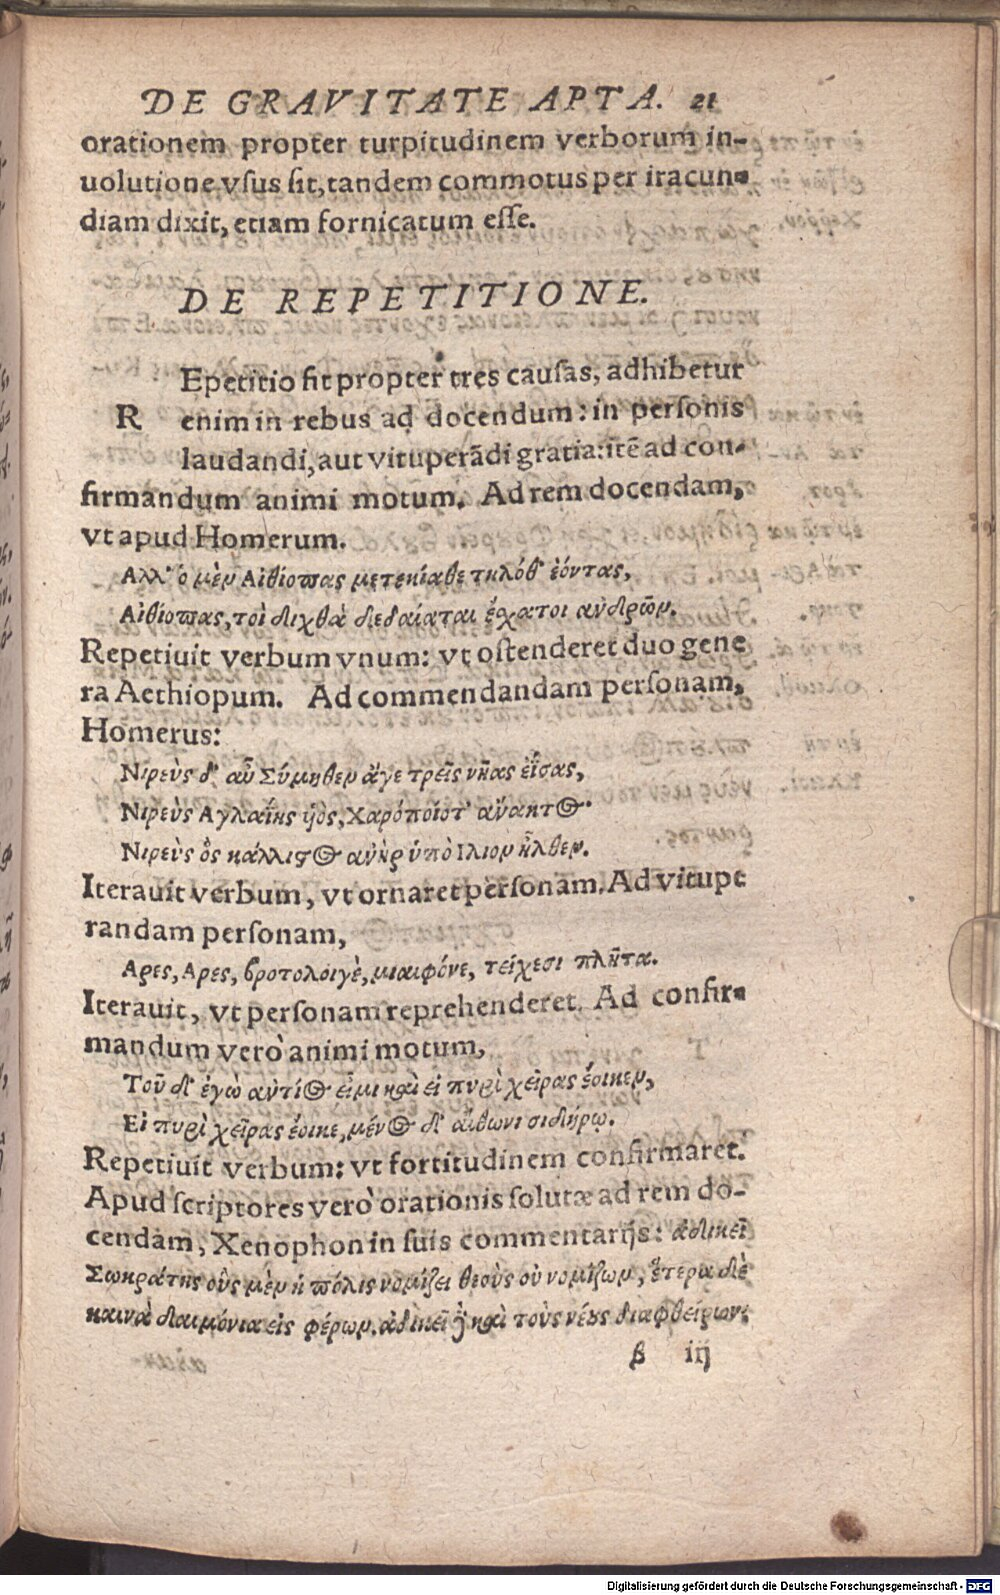 DE GRAVITATE APTA. 21
orationem propter turpitudinem verborum in-
uolutione vſus ſit, tandem commotus per iracun-
diam dixit, etiam fornicatum eſſe.
DE REPETITIONE.
Epetitio fit propter tres cauſas, adhibetur
R enim in rebus ad docendum: in perſonis
laudandi, aut vituperādi gratia: itē ad con-
firmandum animi motum. Ad rem docendam,
vt apud Homerum.
Αλλ' ὁ μὲν Αἰθίοπας μετεκίαθε τηλόθ' ἐόντας,
Αἰθίοπας, τοὶ διχθὰ δεδαίαται ἔσχατοι ανδρῶν.
Repetiuit verbum vnum: vt oſtenderet duo gene
ra Aethiopum. Ad commendandam perſonam,
Homerus:
Νιρεὺς δ' αὖ Σύμηθεν ἄγε τρεῖς νῆας ἐΐσας,
Νιρεὺς Αγλαΐης ὑὸς, Χαρόποιότ' ἄνακτος
Νιρεὺς ὃς κάλλιστος ανὴρ ὑπὸ Ιλιον ἦλθεν.
Iterauit verbum, vt ornaret perſonam. Ad vitupe
randam perſonam,
Αρες, Αρες, βροτολοιγὲ, μιαιφόνε, τείχεσι πλῆτα.
Iterauit, vt perſonam reprehenderet. Ad confir-
mandum verò animi motum,
Τοῦ δ' ἐγὼ αὐτίος εἶμι καὶ εἰ πυρὶ χεῖρας ἔοικεν,
Εἰ πυρὶ χεῖρας ἔοικε, μένος δ' αἴθωνι σιδήρῳ.
Repetiuit verbum: vt fortitudinem confirmaret.
Apud ſcriptores verò orationis ſolutæ ad rem do-
cendam, Xenophon in ſuis commentarijs: ἀδικεῖ
Σωκράτης οὓς μὲν ἡ πόλις νομίζει θεοὺς οὐ νομίζων, ἕτερα δὲ
καινὰ δαιμόνια εἰς φέρων. ἀδικεῖ δὲ καὶ τοὺς νέους διαφθείρων:
β iij
Digitalisierung gefördert durch die Deutsche Forschungsgemeinschaft - DFG